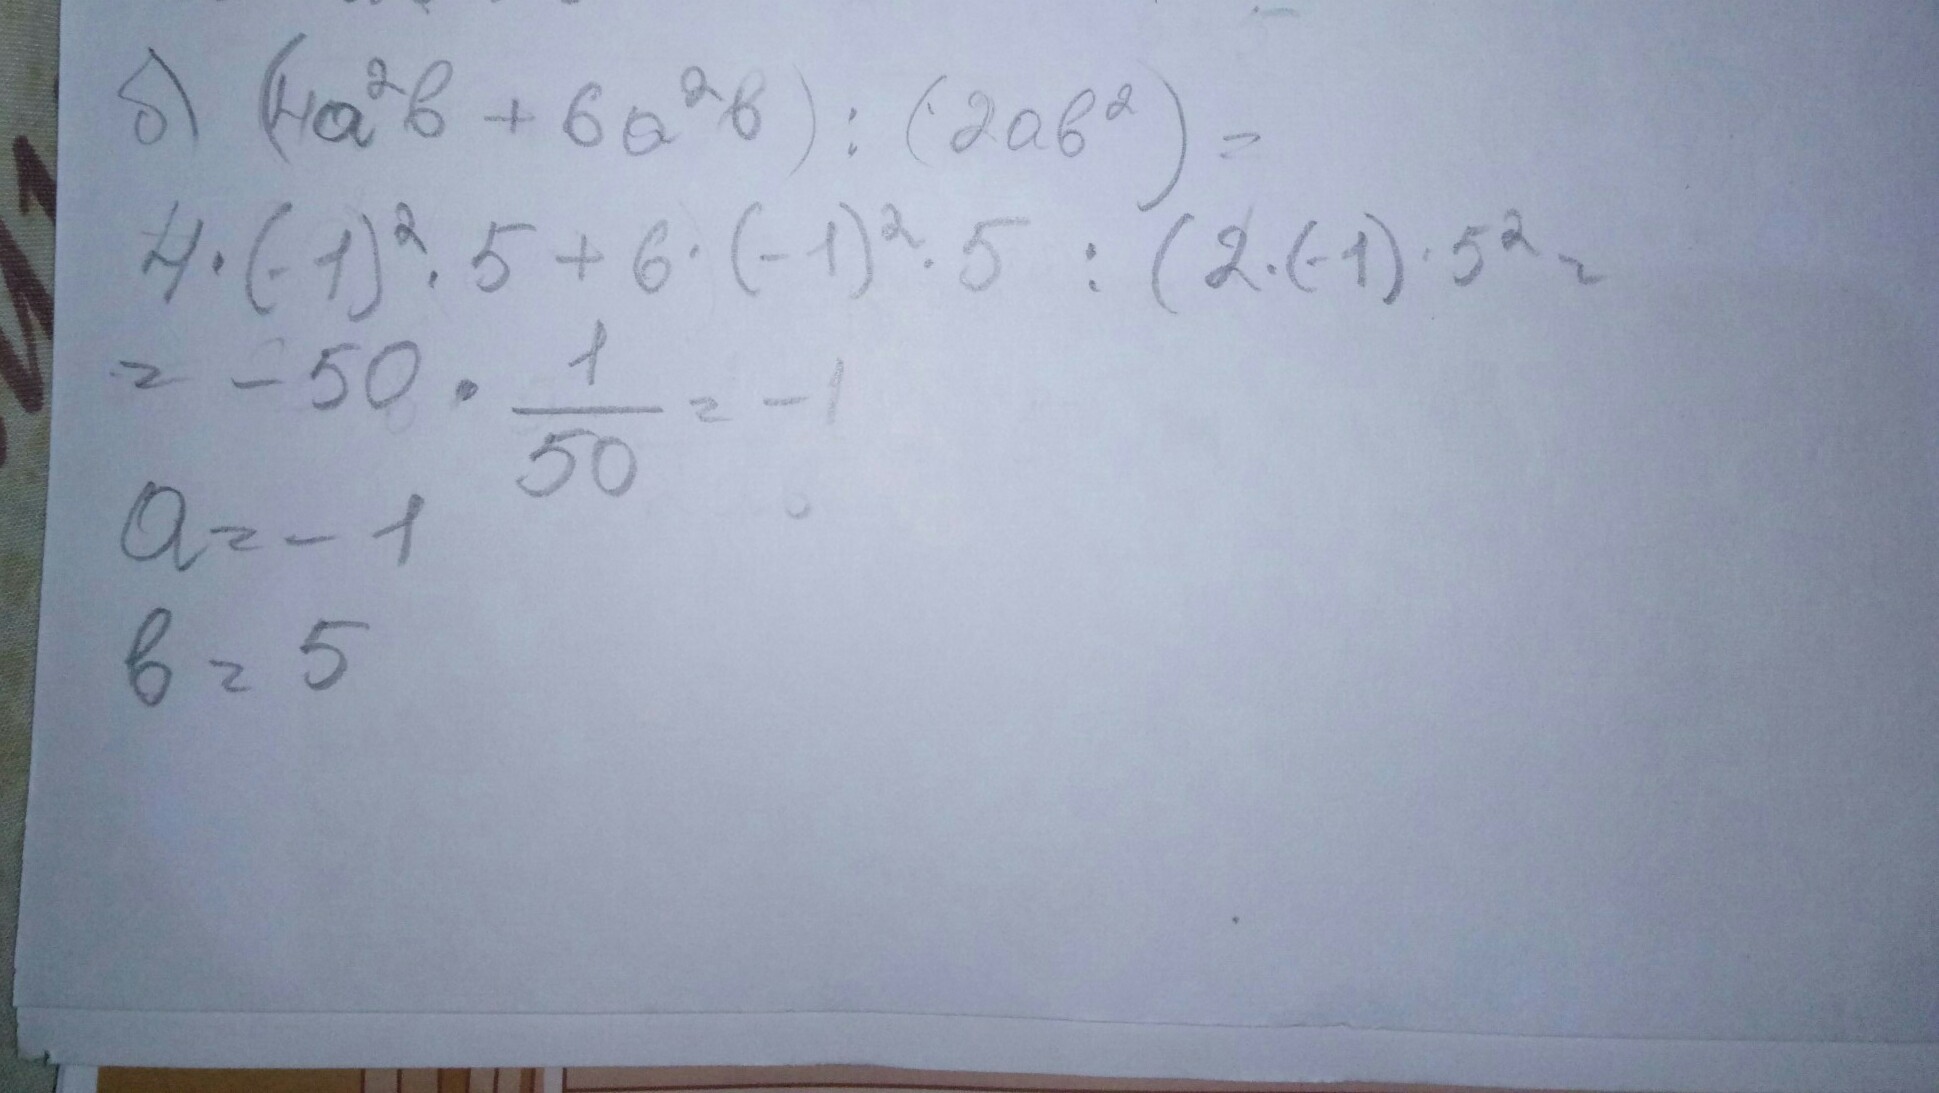 б) (4a²b + 6a²b) : (2ab²) =
4·(-1)²·5 + 6·(-1)²·5 : (2·(-1)·5² =
= -50 · 1/50 = -1
a = -1
b = 5